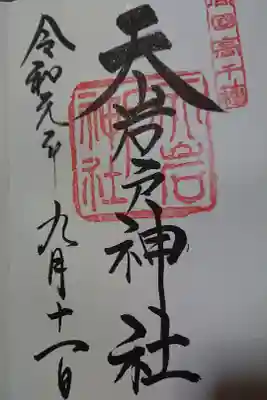 日向國高千穂
天岩戸神社
天岩戸神社
令和元年九月十一日